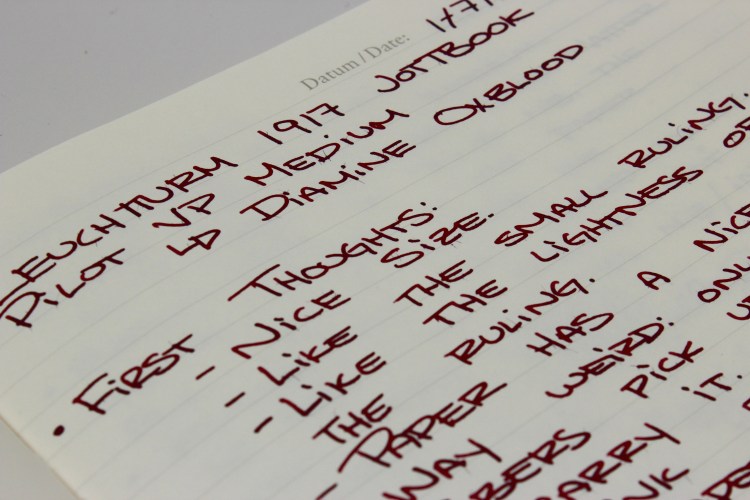 Datum / Date:
LEUCHTTURM 1917 JOTTBOOK
PILOT VP MEDIUM
↳ DIAMINE OXBLOOD
• FIRST THOUGHTS:
- NICE SIZE.
- LIKE THE SMALL RULING.
- LIKE THE LIGHTNESS OF
THE RULING.
- PAPER HAS A NICE
WAY WEIRD: ONLY
PICK
IT.